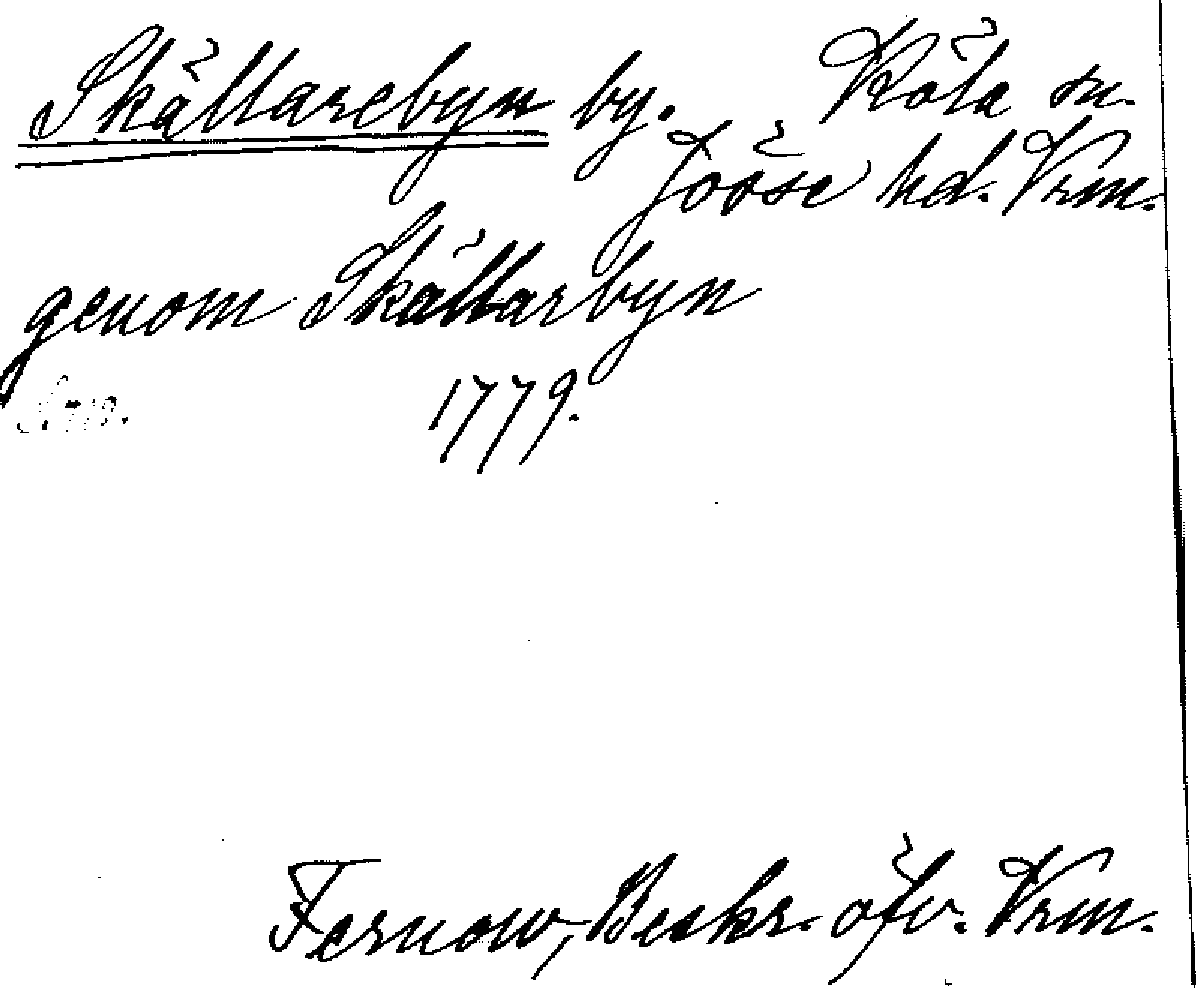 Skällarebyn by. Köla sn.
Jösse hd. Vrm.
genom Skällarbyn
1779.
Fernow, Beskr. öfv. Vrm.